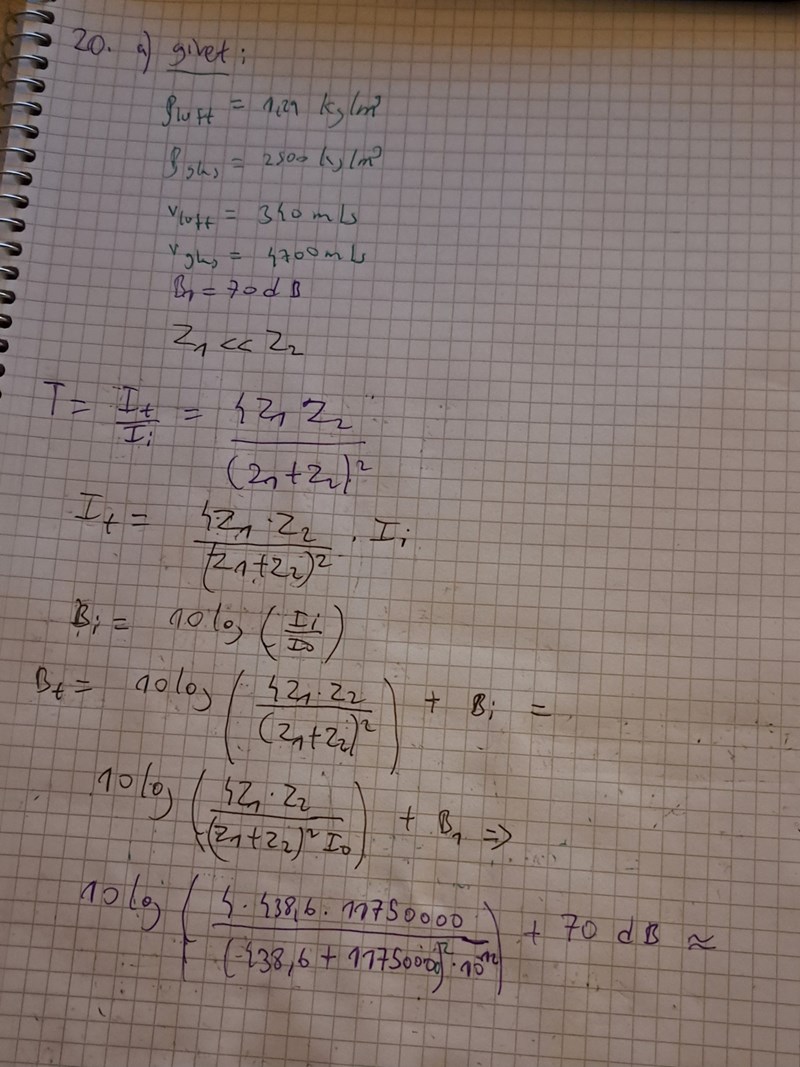 20. a) givet:
ρluft = 1,29 kg/m³
ρglas = 2500 kg/m³
vluft = 340 m/s
vglas = 4700 m/s
B₁ = 70 dB
Z₁ << Z₂
T = It/Ii = 4Z₁ Z₂/(Z₁+Z₂)²
It = 4Z₁·Z₂/(Z₁+Z₂)² · Ii
Bi = 10 log (Ii/I₀)
Bt = 10 log (4Z₁·Z₂/(Z₁+Z₂)²) + Bi =
10 log (4Z₁·Z₂/((Z₁+Z₂)² I₀)) + B₁ =>
10 log (4·438,6·11750000/((438,6 + 11750000)²·10⁻¹²)) + 70 dB ≈